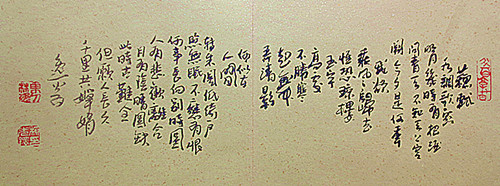 蘇軾
水調歌頭
明月幾時有把酒
問青天不知天上宮
闕今夕是何年
我欲
乘風歸去
惟恐瓊樓
玉宇
高處
不勝寒
起舞
弄清影
何似在
人間
轉朱閣低綺戶
照無眠不應有恨
何事長向別時圓
人有悲歡離合
月有陰晴圓缺
此事古難全
但願人長久
千里共嬋娟